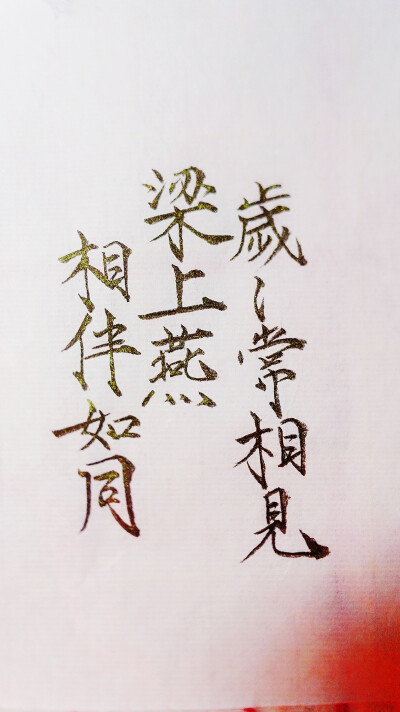 相伴如同
梁上燕
歲〻常相見